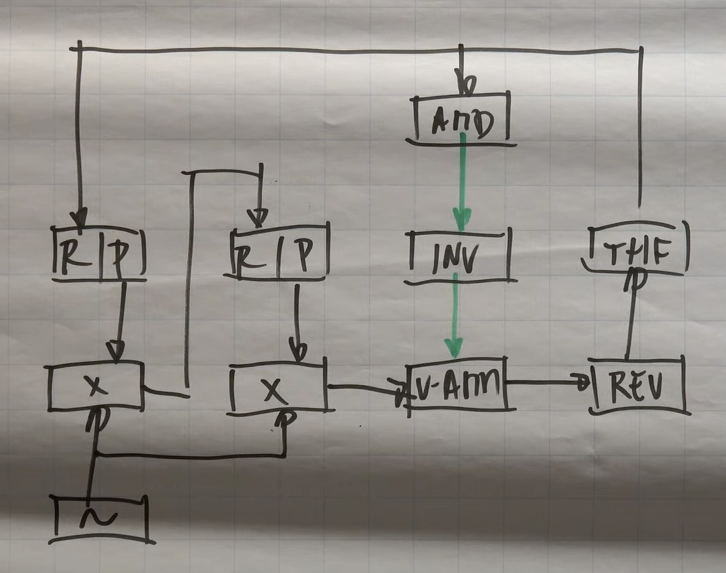 AMD
R|P
R|P
INV
THF
X
X
V-AMM
REV
~